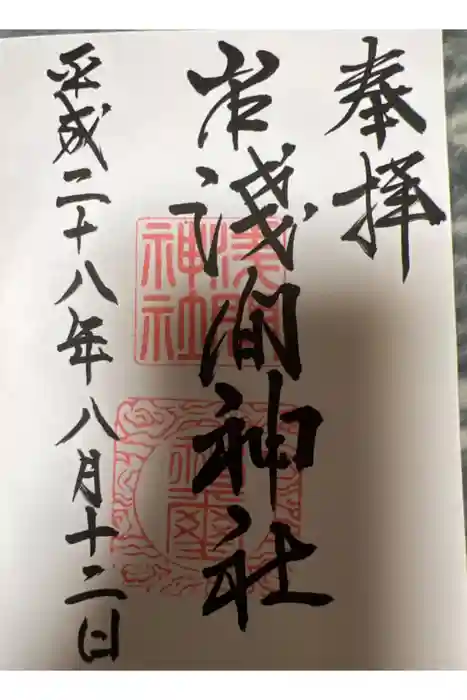 奉拝
淺間神社
平成二十八年八月十二日
浅間
神社